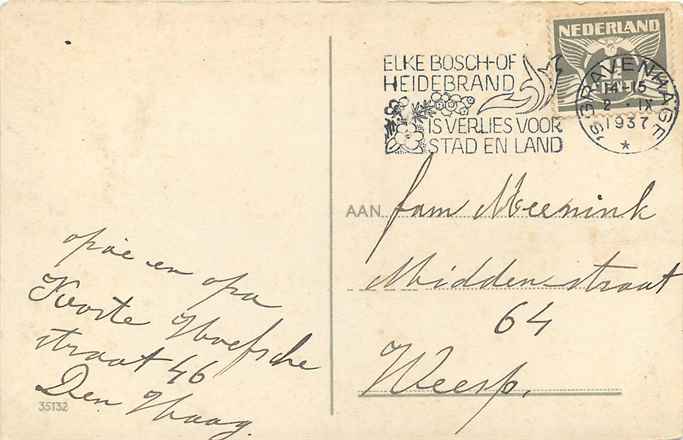 ELKE BOSCH-OF
HEIDEBRAND
IS VERLIES VOOR
STAD EN LAND
NEDERLAND
'S GRAVENHAGE
14-15
2 · IX
1937
*
AAN
fam Meenink
Midden-straat
64
Weesp.
en opa
Korte Hoefsche
straat 46
Den Haag.
35132